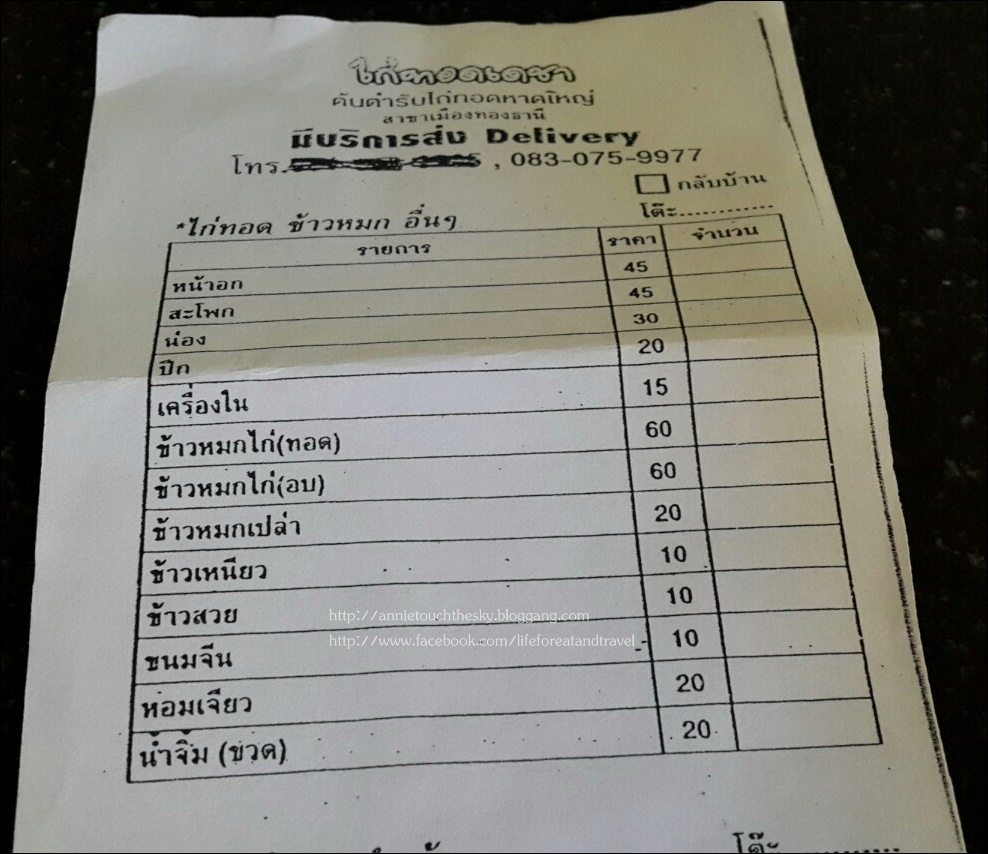 ไก่ทอดเดชา
ต้นตำรับไก่ทอดหาดใหญ่
สาขาเมืองทองธานี
มีบริการส่ง Delivery
โทร. , 083-075-9977
กลับบ้าน
*ไก่ทอด ข้าวหมก อื่นๆ โต๊ะ............
รายการ ราคา จำนวน
หน้าอก 45
สะโพก 45
น่อง 30
ปีก 20
เครื่องใน 15
ข้าวหมกไก่(ทอด) 60
ข้าวหมกไก่(อบ) 60
ข้าวหมกเปล่า 20
ข้าวเหนียว 10
ข้าวสวย 10
ขนมจีน 10
หอมเจียว 20
น้ำจิ้ม (ขวด) 20
http://annietouchthesky.bloggang.com
http://www.facebook.com/lifeforeatandtravel
โต๊ะ............